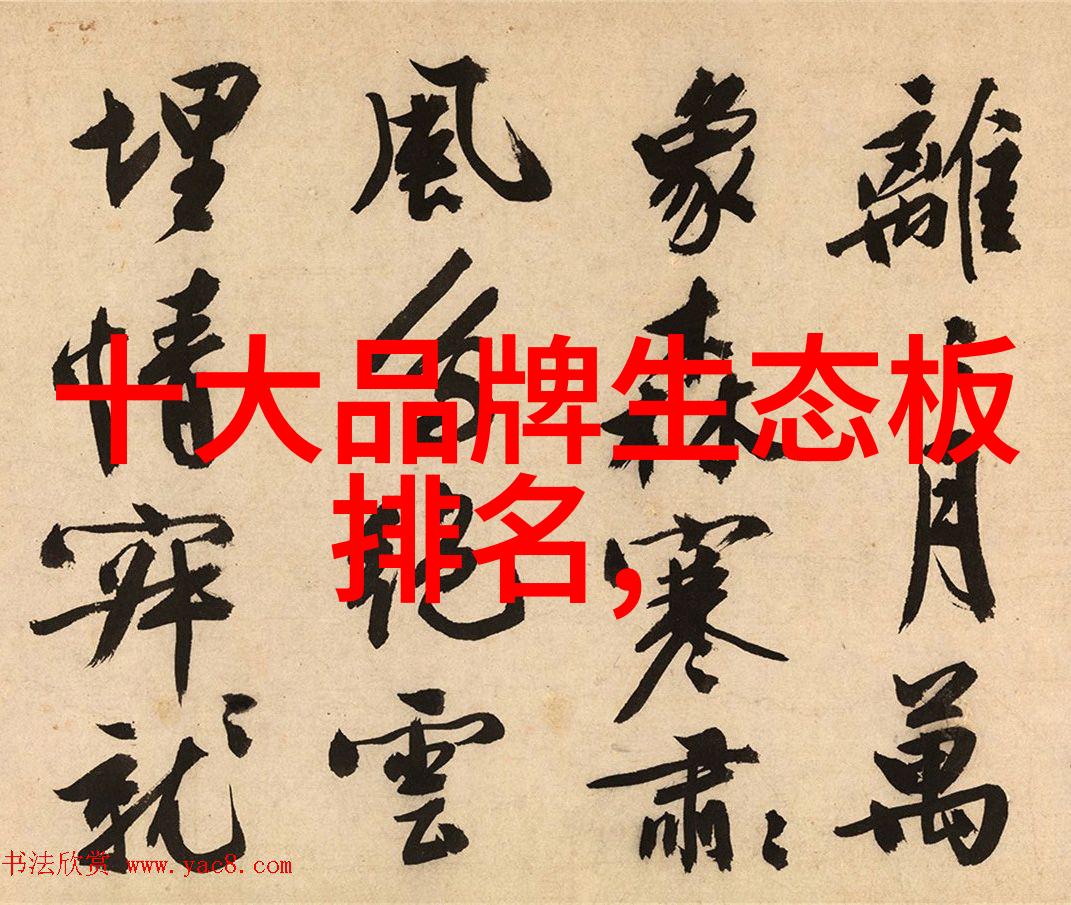 離月萬
象森寒肅
風雲
埋情就
十大品牌生态板
排名,
书法欣赏 www.yac8.com